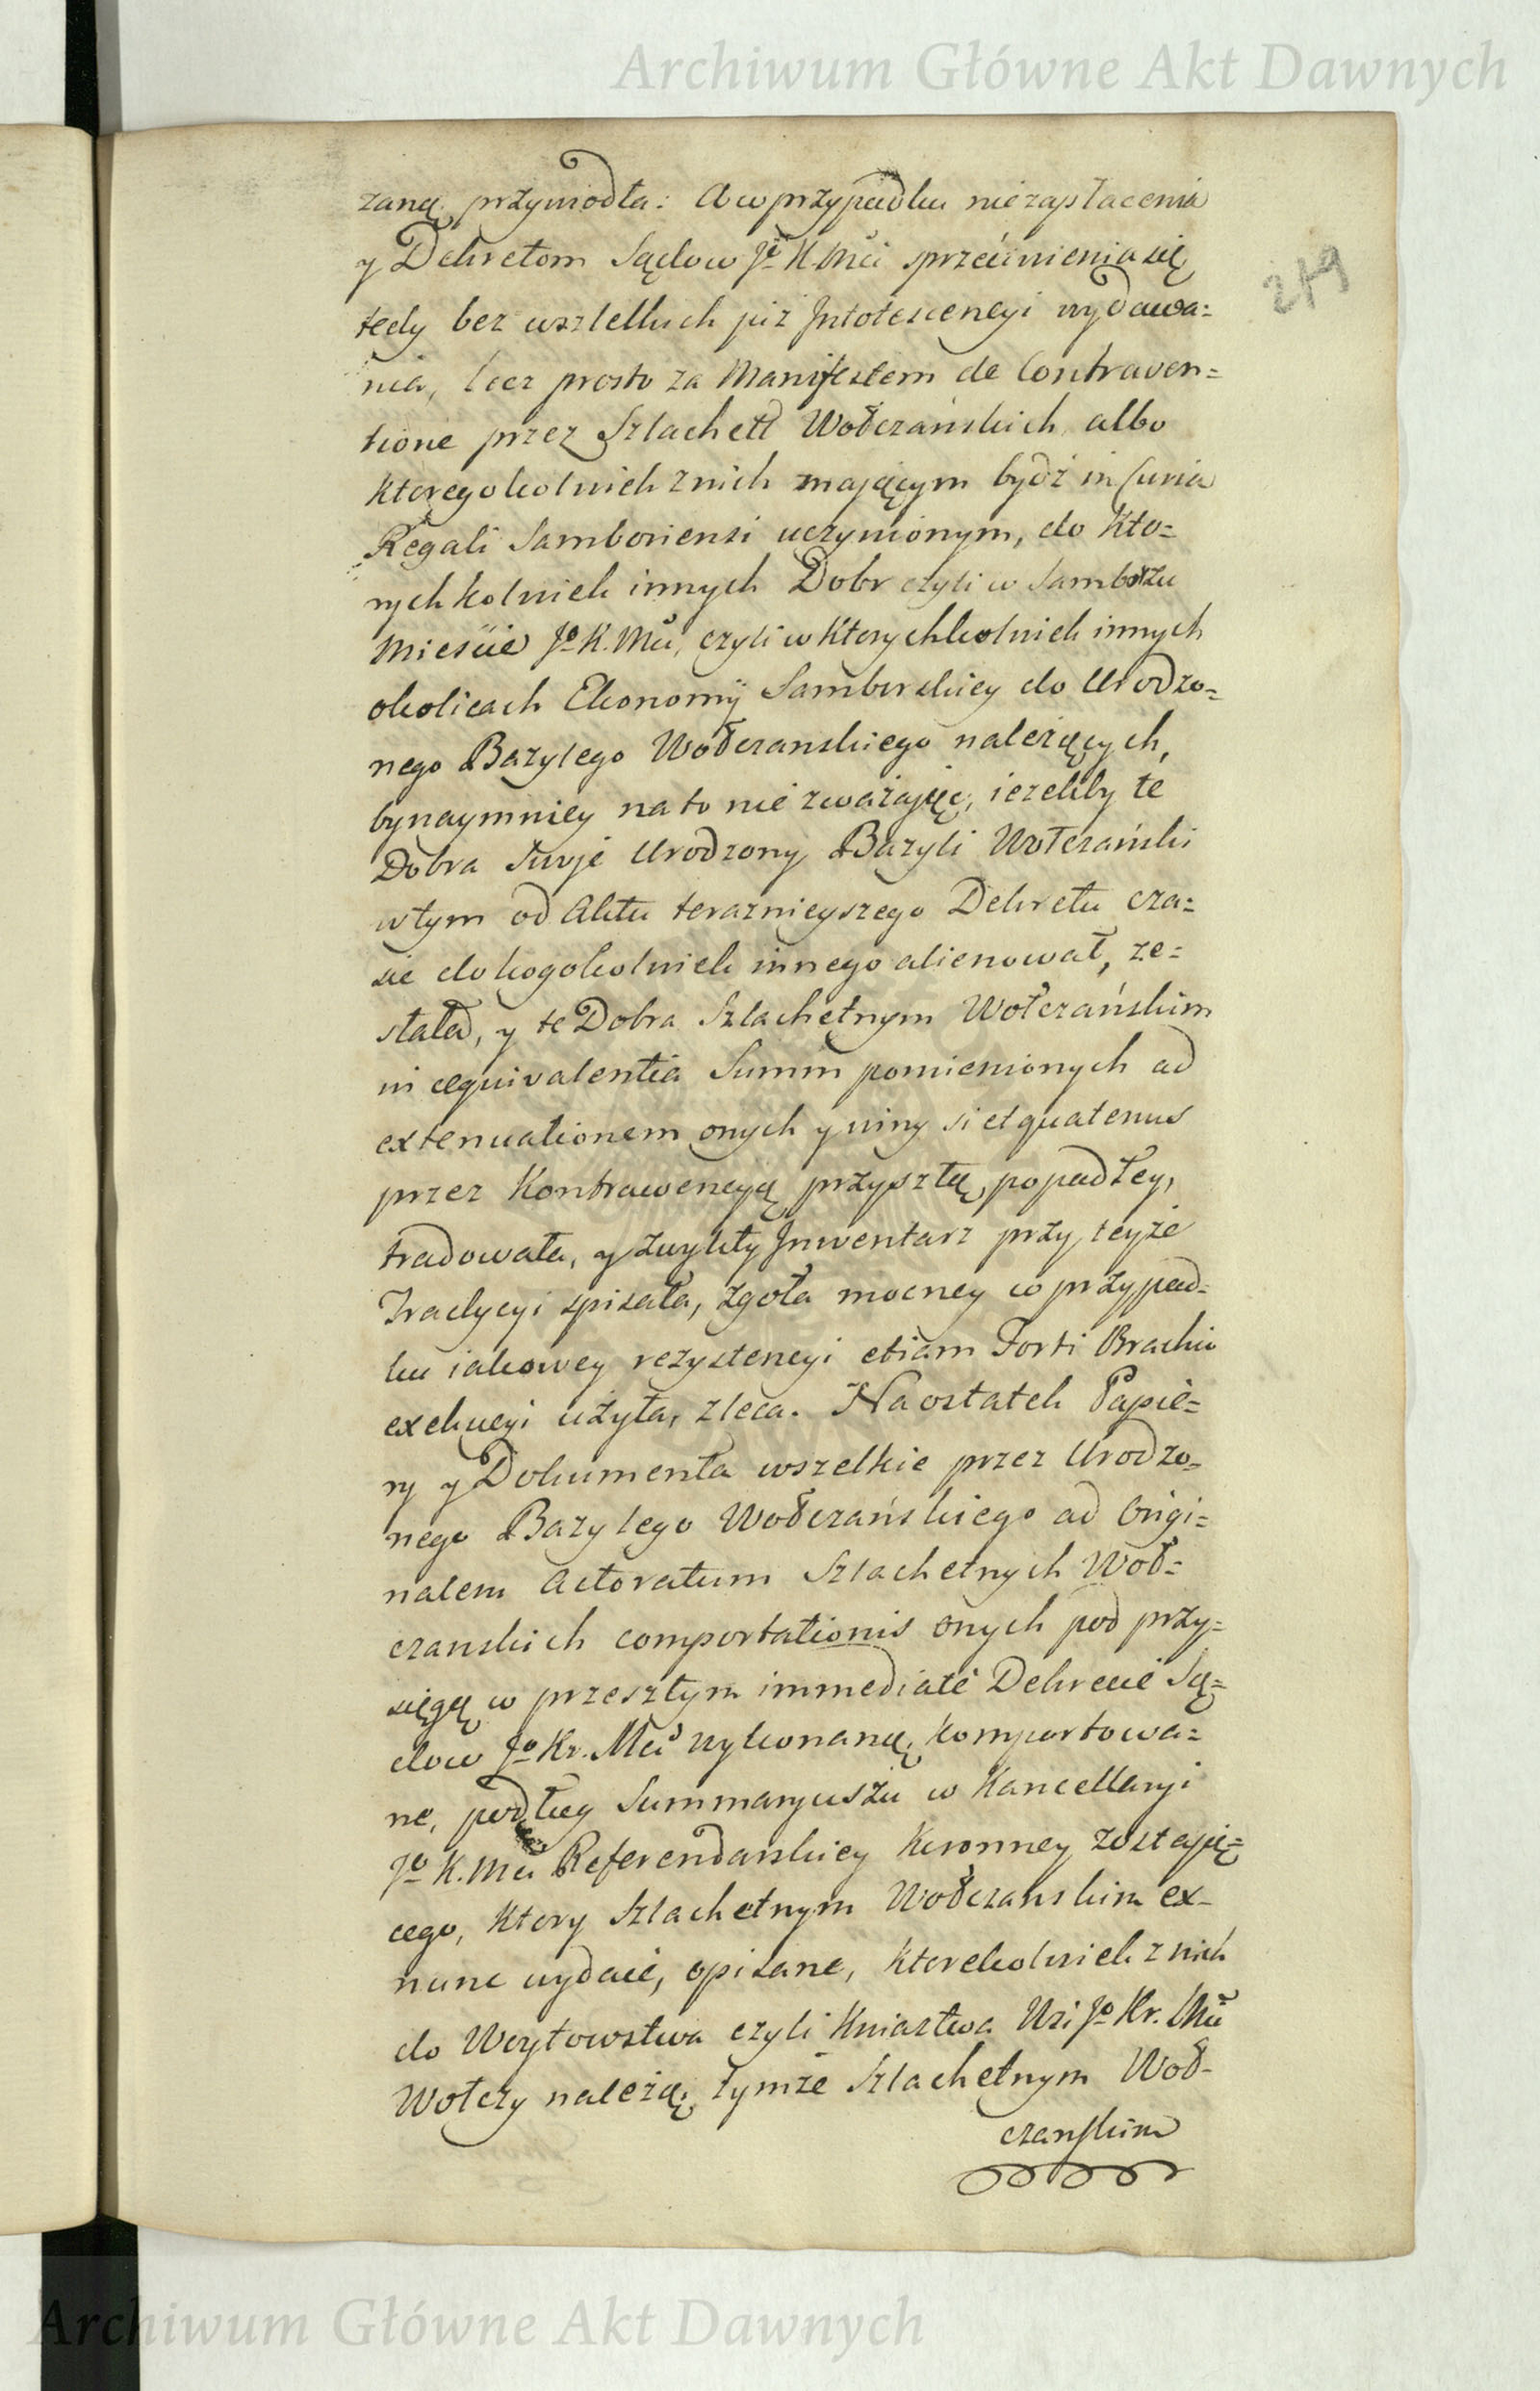 Archiwum Główne Akt Dawnych
219
zaną przywiodła: A w przypadku niezapłacenia
y Dekretom Sądow Jo K. Mci sprzeciwienia się
tedy bez wszelkich już Intotescencyi wydawa=
nia, lecz prosto za Manifestem de Contraven=
tione przez Szlachett Wołczańskich albo
ktoregokolwiek z nich mającym bydź in Curia
Regali Samboriensi uczynionym, do kto=
rychkolwiek innych Dobr czyli w Samborzu
Mieście Jo K. Mci, czyli w ktorychkolwiek innych
okolicach Ekonomÿ Samborskiey do Urodzo=
nego Bazylego Wołczanskiego należących,
bynaymniey na to nie zważając, ieżeliby te
Dobra Swoje Urodzony Bazyli Wołczański
w tym od Aktu teraznieyszego Dekretu cza=
sie do kogokolwiek innego alienował, ze=
słała, y te Dobra Szlachetnym Wołczańskim
in aequivalentia Summ pomienionych ad
extenuationem onych y winy si et quatenus
przez Kontrawencyą przyszłą popadłey,
tradowała, y zwykły Inwentarz przy teyże
Tradycyi spisała, zgoła mocney w przypad=
ku iakowey rezystencyi etiam Forti Brachio
exekucyi użyła, zleca. Naostatek Papie=
ry y Dokumenta wszelkie przez Urodzo=
nego Bazylego Wołczańskiego ad Origi=
nalem Actoratum Szlachetnych Woł=
czanskich comportationis onych pod przy=
sięgą w przeszłym immediate Dekrecie Są=
dow Jo Kr. Mci wykonaną komportowa=
ne, podług Summaryuszu w Kancellaryi
Jo K. Mci Referendarskiey Koronney zostają=
cego, ktory Szlachetnym Wołczanskim ex=
nunc wydaie, opisane, ktorekolwiek z nich
do Woytowstwa czyli Kniaztwa Wsi Jo Kr. Mci
Wołczy należą, tymże Szlachetnym Woł=
czanskim
Archiwum Główne Akt Dawnych